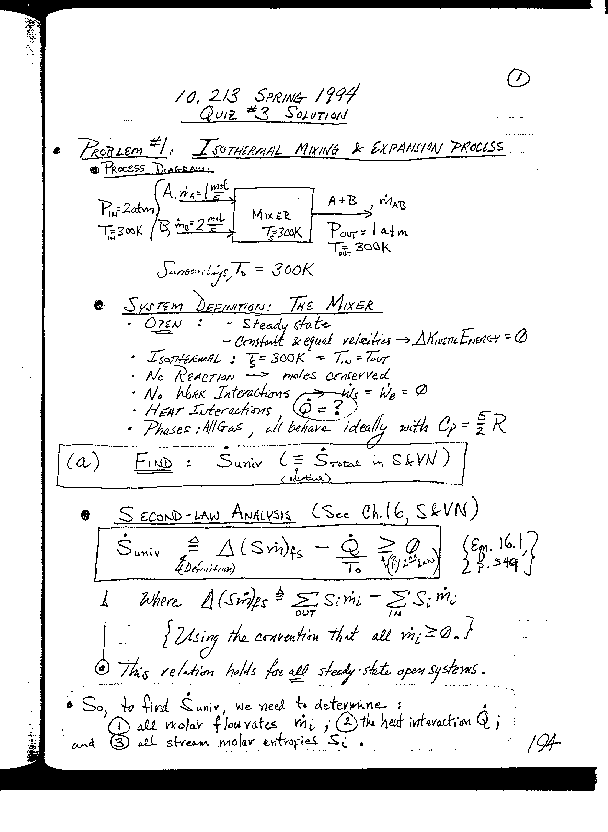 1
10.213 SPRING 1994
QUIZ #3 SOLUTION
• PROBLEM #1: ISOTHERMAL MIXING & EXPANSION PROCESS
• PROCESS DIAGRAM:
A, ṁ_A = 1 mol/s
P_IN = 2 atm
T_IN = 300K
B, ṁ_B = 2 mol/s
MIXER
T_S = 300K
A+B, ṁ_AB
P_OUT = 1 atm
T_OUT = 300K
Surroundings, T_0 = 300K
• SYSTEM DEFINITION: THE MIXER
• OPEN : - Steady state
- Constant & equal velocities → ΔKINETIC ENERGY = 0
• ISOTHERMAL : T_S = 300K = T_IN = T_OUT
• NO REACTION → moles conserved
• NO WORK INTERACTIONS → Ẇ_S = Ẇ_e = 0
• HEAT Interactions, Q̇ = ?
• Phases: All Gas, all behave ideally with C_P = 5/2 R
(a) FIND : Ṡ_univ (≡ Ṡ_TOTAL in S&VN)
• SECOND-LAW ANALYSIS (See Ch. 16, S&VN)
Ṡ_univ ≜ Δ(Sṁ)_fs - Q̇/T_0 ≥ 0
(Definition)
{Eqn. 16.1, p. 549}
Where Δ(Sṁ)_fs ≜ Σ_OUT S_i ṁ_i - Σ_IN S_i ṁ_i
{Using the convention that all ṁ_i ≥ 0.}
This relation holds for all steady-state open systems.
• So, to find Ṡ_univ, we need to determine :
① all molar flowrates ṁ_i ; ② the heat interaction Q̇ ;
and ③ all stream molar entropies S_i .
194